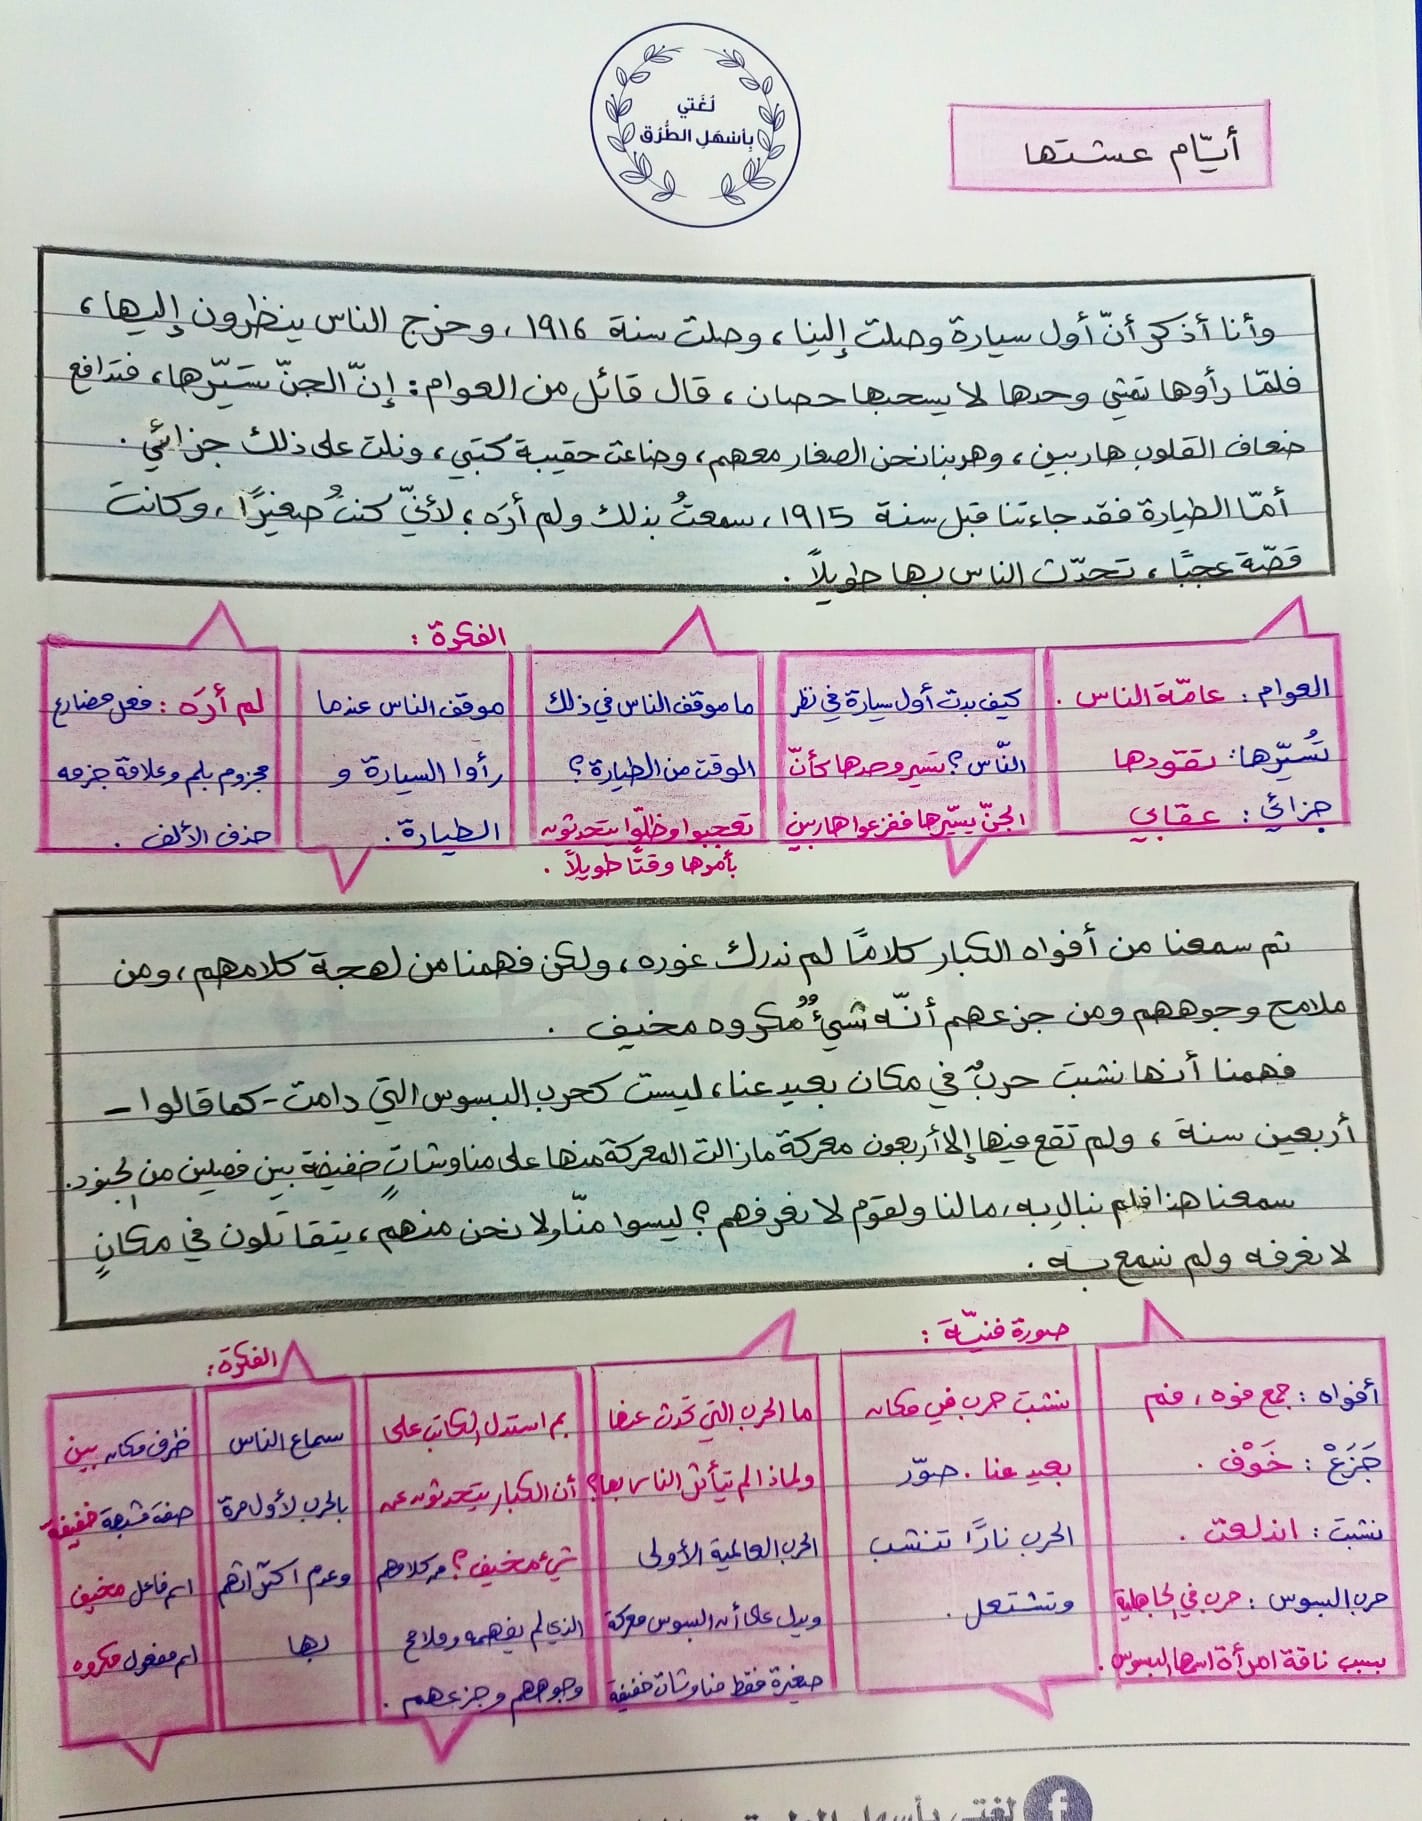 لُغَتي
بِأَسْهَلِ الطُّرُق
أيّام عشتها
وأنا أذكر أنّ أول سيارة وصلت إلينا، وصلت سنة ١٩١٦، وخرج الناس ينظرون إليها،
فلمّا رأوها تمشي وحدها لا يسحبها حصان، قال قائل من العوام: إنّ الجنّ تسَيّرها، فتدافع
ضعاف القلوب هاربين، وهربنا نحن الصغار معهم، وضاعت حقيبة كتبي، ونلت على ذلك جزائي.
أمّا الطيارة فقد جاءتنا قبل سنة ١٩١٥، سمعتُ بذلك ولم أرَه، لأنيّ كنتُ صغيرًا، وكانت
قصّة عجبًا، تحدّث الناس بها طويلاً.
العوام: عامّة الناس.
تُسيّرها: تقودها
جزائي: عقابي
كيف بدت أول سيارة في نظر
النّاس؟ تسير وحدها كأنّ
الجنّ يسيّرها ففزعوا هاربين
ما موقف الناس في ذلك
الوقت من الطيارة؟
تعجبوا وظلّوا يتحدثون
بأمرها وقتًا طويلاً.
الفكرة:
موقف الناس عندما
رأوا السيارة و
الطيارة.
لم أرَه: فعل مضارع
مجزوم بلم وعلامة جزمه
حذف الألف.
ثم سمعنا من أفواه الكبار كلامًا لم ندرك غوره، ولكن فهمنا من لهجة كلامهم، ومن
ملامح وجوههم ومن جزعهم أنّه شيءٌ مكروه مخيف.
فهمنا أنها نشبت حربٌ في مكان بعيد عنا، ليست كحرب البسوس التي دامت - كما قالوا -
أربعين سنة، ولم تقع فيها إلا أربعون معركة ما زالت المعركة منها على مناوشاتٍ خفيفة بين فصيلين من الجنود.
سمعنا هذا فلم نبال به، ما لنا ولقوم لا نعرفهم؟ ليسوا منّا ولا نحن منهم، يتقاتلون في مكانٍ
لا نعرفه ولم نسمع به.
أفواه: جمع فوه، فم
جَزَعْ: خَوْف.
نشبت: اندلعت.
حرب البسوس: حرب في الجاهلية
بسبب ناقة امرأة اسمها البسوس.
صورة فنيّة:
نشبت حرب في مكان
بعيد عنا. صوّر
الحرب نارًا تنشب
وتشتعل.
ما الحرب التي تحدث عنها
ولماذا لم يتأثر الناس بها؟
الحرب العالمية الأولى
ويدل على أن البسوس معركة
صغيرة فقط مناوشات خفيفة
بم استدل الكاتب على
أن الكبار يتحدثون عن
شيء مخيف؟ من كلامهم
الذي لم يفهمه وملامح
وجوههم وجزعهم.
الفكرة:
سماع الناس
بالحرب لأول مرة
وعدم اكتراثهم
بها
ظرف مكان بين
صفة مشبهة خفيفة
اسم فاعل مخيف
اسم مفعول مكروه